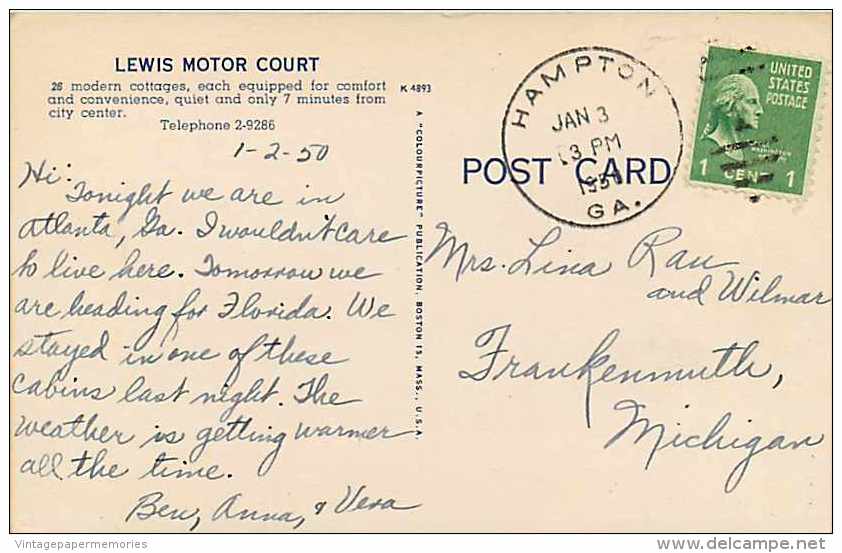 LEWIS MOTOR COURT
26 modern cottages, each equipped for comfort
and convenience, quiet and only 7 minutes from
city center.
Telephone 2-9286
1-2-50
Hi:
Tonight we are in
Atlanta, Ga. I wouldn't care
to live here. Tomorrow we
are heading for Florida. We
stayed in one of these
cabins last night. The
weather is getting warmer
all the time.
Ben, Anna, & Vera
K 4893
A "COLOURPICTURE" PUBLICATION, BOSTON 15, MASS., U.S.A.
HAMPTON
JAN 3
3 PM
195
GA.
POST CARD
UNITED
STATES
POSTAGE
WASHINGTON
1 CENT 1
Mrs. Lina Rau
and Wilmar
Frankenmuth,
Michigan
Vintagepapermemories
delcampe.net